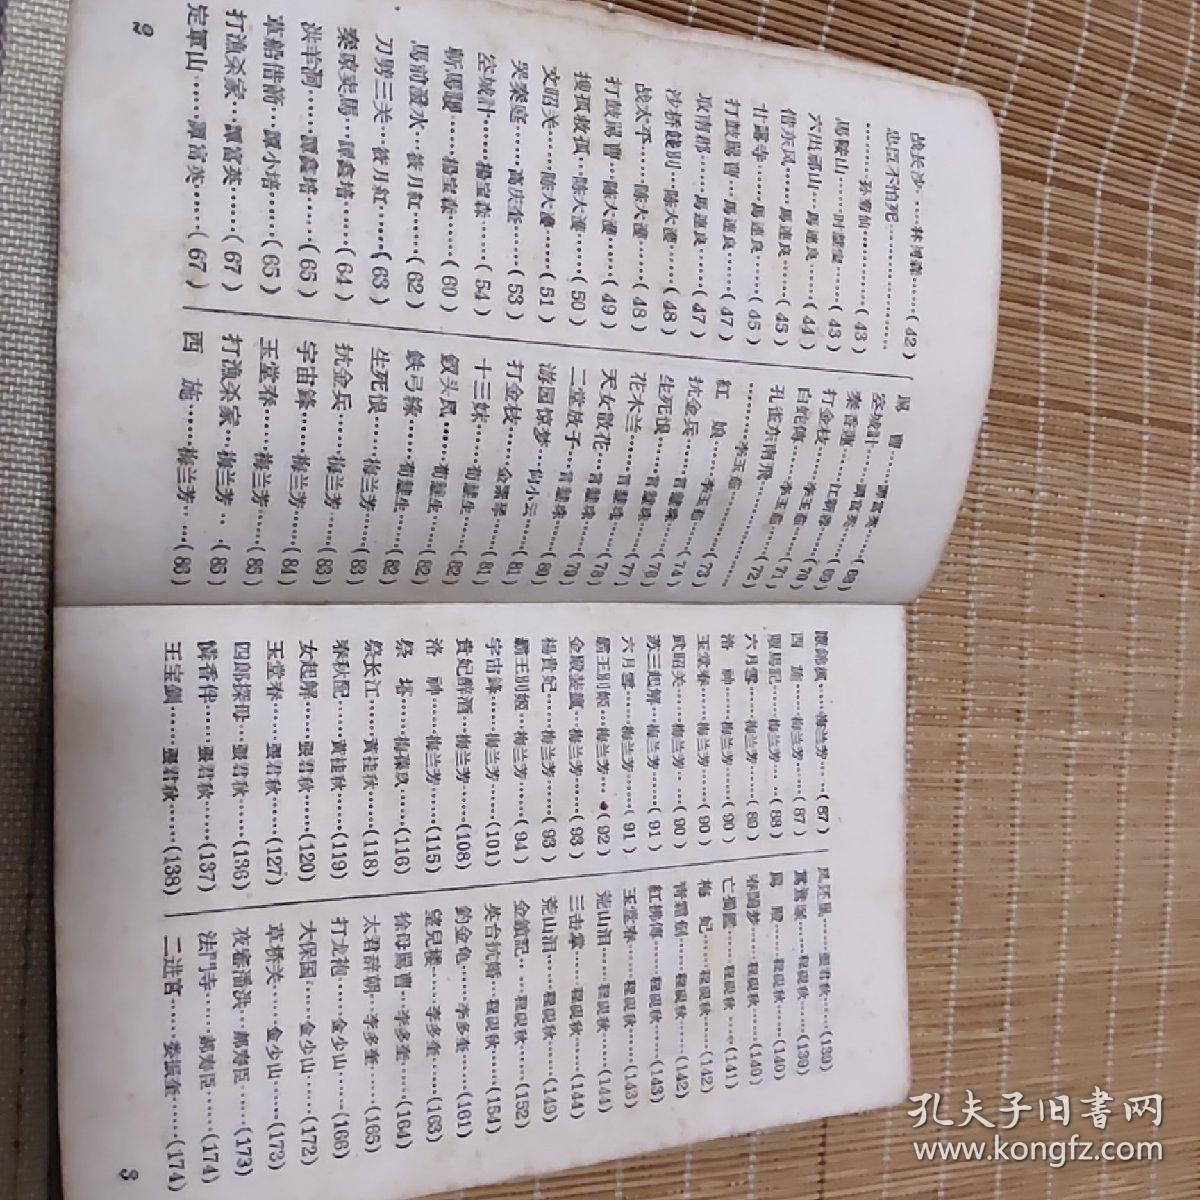 战长沙……林樹森……(42)
忠臣不怕死……
……孙菊仙……(43)
馬鞍山……时慧宝……(43)
六出祁山…馬連良……(44)
借东风……馬連良……(45)
甘露寺……馬連良……(45)
打鼓罵曹…馬連良……(47)
取南郡……馬連良……(47)
沙桥餞别…陈大濩……(48)
战太平……陈大濩……(48)
打鼓罵曹…陈大濩……(49)
搜孤救孤…陈大濩……(50)
文昭关……陈大濩……(51)
哭秦庭……高庆奎……(53)
空城計……楊宝森……(54)
斬馬謖……楊宝森……(60)
馬前潑水…筱月紅……(62)
刀劈三关…筱月紅……(63)
秦琼卖馬…譚鑫培……(64)
洪羊洞……譚鑫培……(65)
草船借箭…譚小培……(65)
打漁杀家…譚富英……(67)
定軍山……譚富英……(67)
2
罵曹……譚富英……(68)
空城計……譚富英……(69)
秦香蓮……
打金枝……李玉茹……(70)
白蛇傳……李玉茹……(71)
孔雀东南飛……(72)
……李玉茹……
紅娘……(73)
抗金兵……李玉茹……(74)
生死恨……言慧珠……(76)
花木兰……言慧珠……(77)
天女散花…言慧珠……(78)
二堂放子…言慧珠……(79)
游园惊梦…尚小云……(80)
打金枝……金素琴……(81)
十三妹……荀慧生……(81)
釵头凤……荀慧生……(82)
鉄弓緣……荀慧生……(82)
生死恨……梅兰芳……(83)
抗金兵……梅兰芳……(83)
宇宙鋒……梅兰芳……(84)
玉堂春……梅兰芳……(85)
打漁杀家…梅兰芳……(86)
西施……梅兰芳……(86)
……梅兰芳……(87)
西施……梅兰芳……(87)
販馬記……梅兰芳……(88)
六月雪……梅兰芳……(89)
洛神……梅兰芳……(90)
玉堂春……梅兰芳……(90)
武昭关……梅兰芳……(90)
苏三起解…梅兰芳……(91)
六月雪……梅兰芳……(91)
霸王别姬…梅兰芳……(92)
金殿装瘋…梅兰芳……(93)
楊貴妃……梅兰芳……(93)
霸王别姬…梅兰芳……(94)
宇宙鋒……梅兰芳……(101)
貴妃醉酒…梅兰芳……(108)
洛神……梅兰芳……(115)
祭塔……梅葆玖……(116)
祭长江……黃桂秋……(118)
春秋配……黃桂秋……(119)
女起解……張君秋……(120)
玉堂春……張君秋……(127)
四郎探母…張君秋……(136)
憐香伴……張君秋……(137)
王宝釧……張君秋……(138)
凤还巢……張君秋……(139)
鴛鴦冢……程硯秋……(139)
罵殿……程硯秋……(140)
春閨夢……程硯秋……(140)
亡蜀鑑……程硯秋……(141)
梅妃……程硯秋……(142)
青霜劍……程硯秋……(142)
紅拂傳……程硯秋……(143)
玉堂春……程硯秋……(143)
荒山泪……程硯秋……(144)
三击掌……程硯秋……(144)
荒山泪……程硯秋……(149)
金鎖記……程硯秋……(152)
英台抗婚…程硯秋……(154)
釣金龟……李多奎……(161)
望兒楼……李多奎……(163)
徐母罵曹…李多奎……(164)
太君辞朝…李多奎……(165)
打龙袍……金少山……(166)
大保国……金少山……(172)
草桥关……金少山……(173)
夜審潘洪…郝寿臣……(173)
法門寺……郝寿臣……(174)
二进宫……娄振奎……(174)
3
孔夫子旧書网
www.kongfz.com